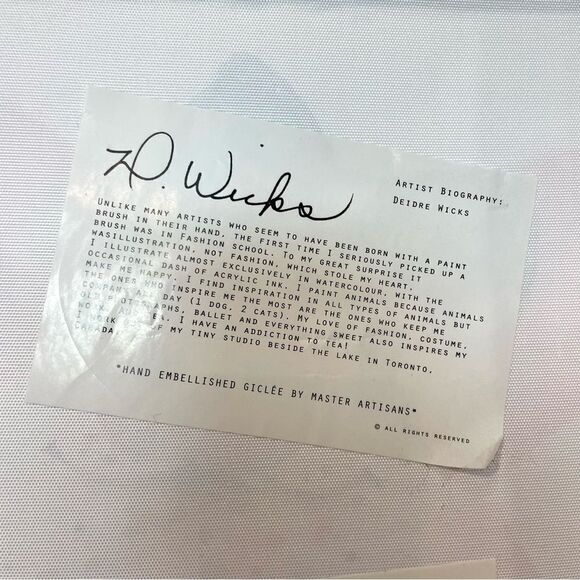 D. Wicks
Artist Biography:
Deidre Wicks
Unlike many artists who seem to have been born with a paint
brush in their hand, the first time I seriously picked up a
brush was in Fashion school. To my great surprise it
wasillustration, not fashion, which stole my heart.
I illustrate almost exclusively in watercolour, with the
occasional dash of acrylic ink. I paint animals because animals
make me happy. I find inspiration in all types of animals but
the ones who inspire me the most are the ones who keep me
company day (1 dog, 2 cats). My love of fashion, costume,
old photographs, ballet and everything sweet also inspires my
work. I have an addiction to tea!
I work of my tiny studio beside the lake in Toronto,
Canada.
*Hand Embellished Giclée by Master Artisans*
© All Rights Reserved